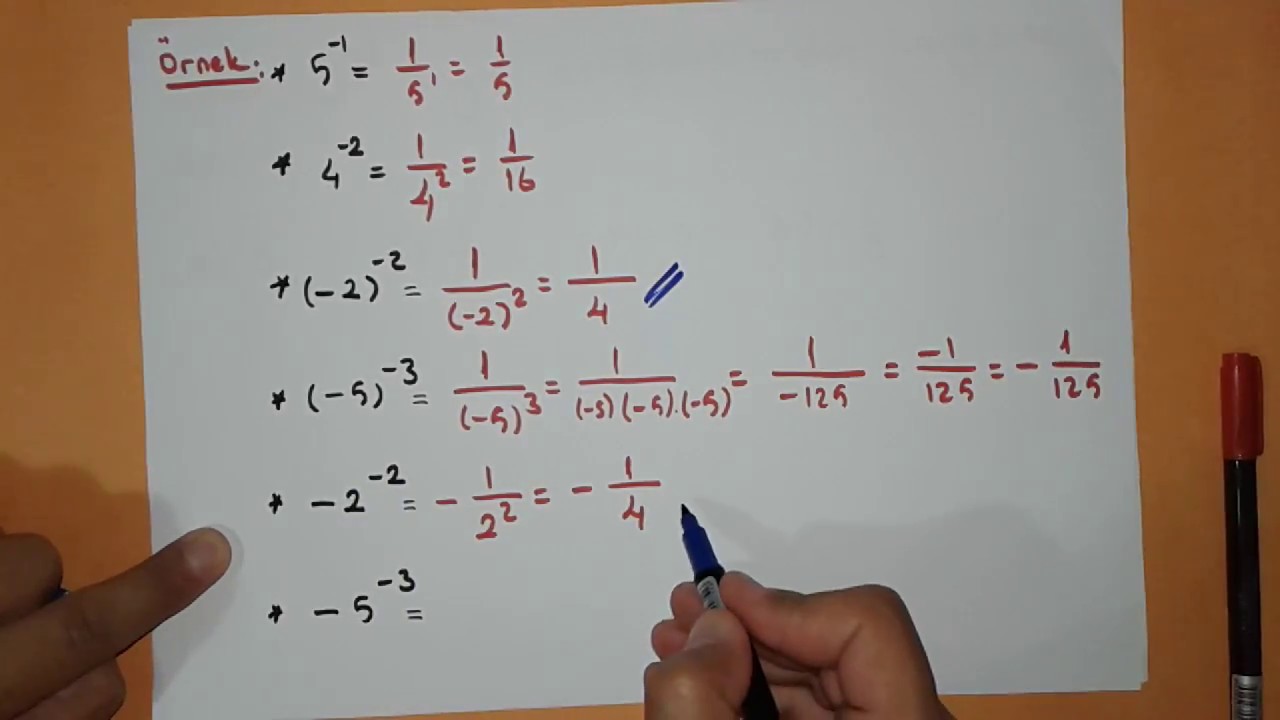 Örnek: * 5⁻¹ = 1/5¹ = 1/5
* 4⁻² = 1/4² = 1/16
* (-2)⁻² = 1/(-2)² = 1/4
* (-5)⁻³ = 1/(-5)³ = 1/(-5)(-5).(-5) = 1/-125 = -1/125 = - 1/125
* -2⁻² = - 1/2² = - 1/4
* -5⁻³ =